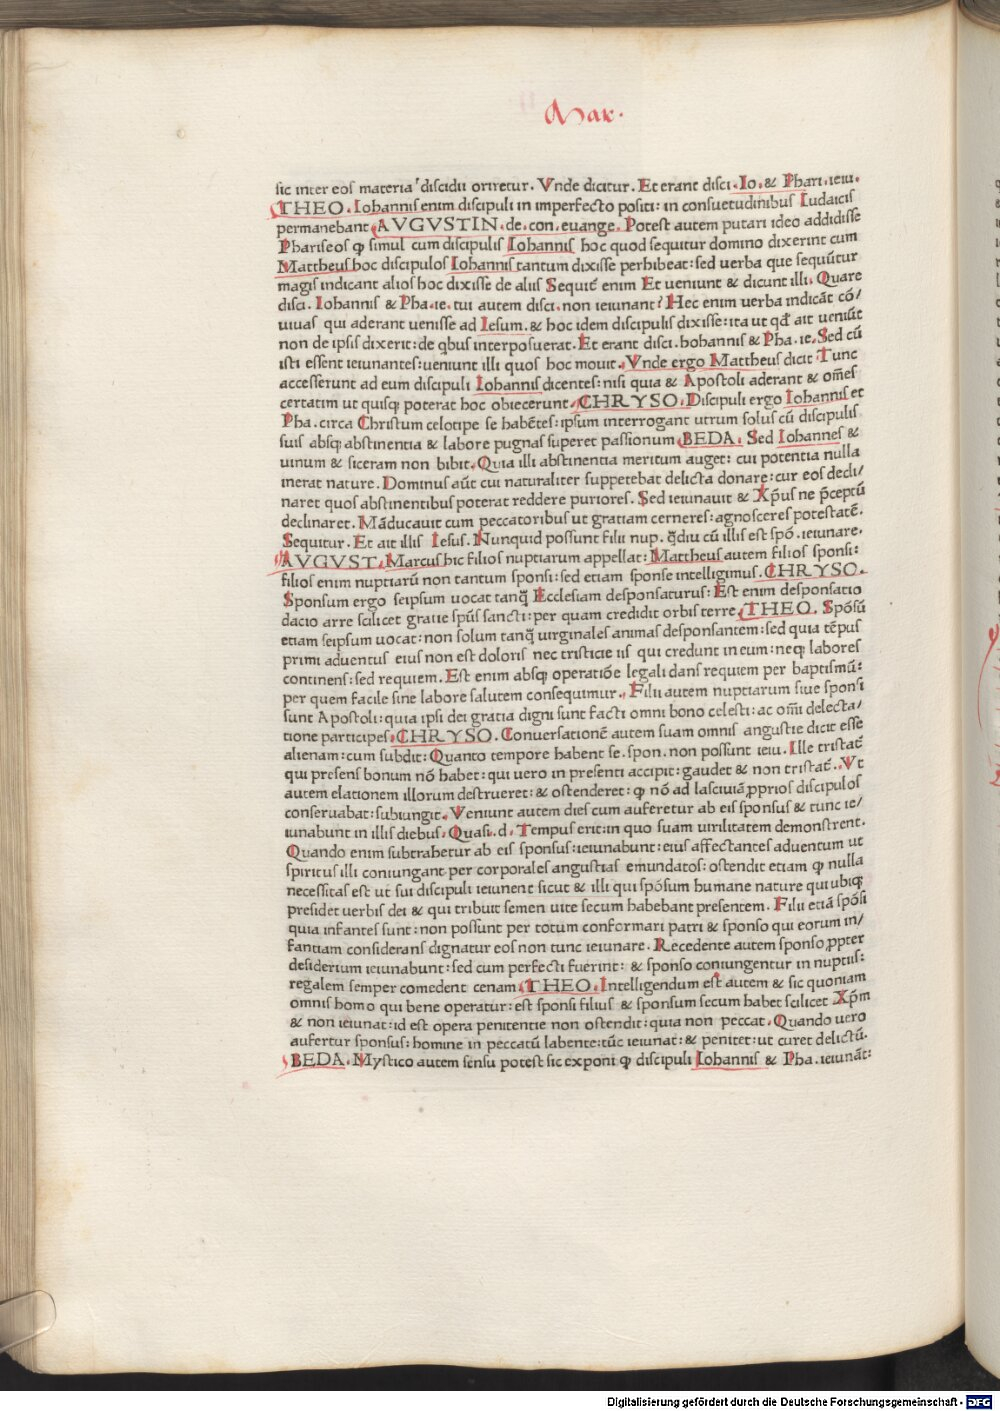 Mar.
sic inter eos materia discidii oriretur. Vnde dicitur. Et erant disci. Io. & Phari. ieiu.
THEO. Iohannis enim discipuli in imperfecto positi: in consuetudinibus Iudaicis
permanebant AVGVSTIN. de. con. euange. Potest autem putari ideo addidisse
Phariseos ꝙ simul cum discipulis Iohannis hoc quod sequitur domino dixerint cum
Mattheus hoc discipulos Iohannis tantum dixisse perhibeat: sed uerba que sequūtur
magis indicant alios hoc dixisse de aliis Sequit̃ enim Et ueniunt & dicunt illi. Quare
disci. Iohannis & Pha. ie. tui autem disci. non ieiunant? Hec enim uerba indicāt cō/
uiuas qui aderant uenisse ad Iesum. & hoc idem discipulis dixisse: ita ut qđ ait ueniūt
non de ipsis dixerit: de q̄bus interposuerat. Et erant disci. hohannis & Pha. ie. Sed cū
isti essent ieiunantes: ueniunt illi quos hoc mouit. Vnde ergo Mattheus dicit Tunc
accesserunt ad eum discipuli Iohannis dicentes: nisi quia & Apostoli aderant & om̄es
certatim ut quisꝗ poterat hoc obiecerunt. CHRYSO. Discipuli ergo Iohannis et
Pha. circa Christum celotipe se habētes: ipsum interrogant utrum solus cū discipulis
suis absꝗ abstinentia & labore pugnas superet passionum BEDA. Sed Iohannes &
uinum & siceram non bibit. Quia illi abstinentia meritum auget: cui potentia nulla
inerat nature. Dominus aūt cui naturaliter suppetebat delicta donare: cur eos decli/
naret quos abstinentibus poterat reddere puriores. Sed ieiunauit & Xp̄us ne p̄ceptū
declinaret. Māducauit cum peccatoribus ut gratiam cerneres: agnosceres potestatē.
Sequitur. Et ait illis Iesus. Nunquid possunt filii nup. q̄diu cū illis est spō. ieiunare.
AVGVST. Marcus hic filios nuptiarum appellat: Mattheus autem filios sponsi:
filios enim nuptiarū non tantum sponsi: sed etiam sponse intelligimus. CHRYSO.
Sponsum ergo seipsum uocat tanq̄ Ecclesiam desponsaturus: Est enim desponsatio
dacio arre scilicet gratie sp̄us sancti: per quam credidit orbis terre. THEO. Spōsū
etiam seipsum uocat: non solum tanq̄ uirginales animas desponsantem: sed quia tēpus
primi aduentus eius non est doloris nec tristicie iis qui credunt in eum: neꝗ labores
continens: sed requiem. Est enim absꝗ operatiōe legali dans requiem per baptismū:
per quem facile sine labore salutem consequimur. Filii autem nuptiarum siue sponsi
sunt Apostoli: quia ipsi dei gratia digni sunt facti omni bono celesti: ac om̄i delecta/
tione participes. CHRYSO. Conuersationē autem suam omnis angustie dicit esse
alienam: cum subdit: Quanto tempore habent se. spon. non possunt ieiu. Ille tristat̃
qui presens bonum nō habet: qui uero in presenti accipit: gaudet & non tristat̃. Vt
autem elationem illorum destrueret: & ostenderet: ꝙ nō ad lasciuiā ꝓprios discipulos
conseruabat: subiungit. Venient autem dies cum auferetur ab eis sponsus & tunc ie/
iunabunt in illis diebus. Quasi. d. Tempus erit: in quo suam uirilitatem demonstrent.
Quando enim subtrahetur ab eis sponsus: ieiunabunt: eius affectantes aduentum ut
spiritus illi coniungant per corporales angustias emundatos: ostendit etiam ꝙ nulla
necessitas est ut sui discipuli ieiunent sicut & illi qui spōsum humane nature qui ubiꝗ
presidet uerbis dei & qui tribuit semen uite secum habebant presentem. Filii etiā spōsi
quia infantes sunt: non possunt per totum conformari patri & sponso qui eorum in/
fantiam considerans dignatur eos non tunc ieiunare. Recedente autem sponso ꝓpter
desiderium ieiunabunt: sed cum perfecti fuerint: & sponso coniungentur in nuptiis:
regalem semper comedent cenam. THEO. Intelligendum est autem & sic quoniam
omnis homo qui bene operatur: est sponsi filius & sponsum secum habet scilicet Xp̄m
& non ieiunat: id est opera penitentie non ostendit: quia non peccat. Quando uero
aufertur sponsus: homine in peccatū labente: tūc ieiunat: & penitet: ut curet delictū.
BEDA. Mystico autem sensu potest sic exponi ꝙ discipuli Iohannis & Pha. ieiunāt:
Digitalisierung gefördert durch die Deutsche Forschungsgemeinschaft - DFG